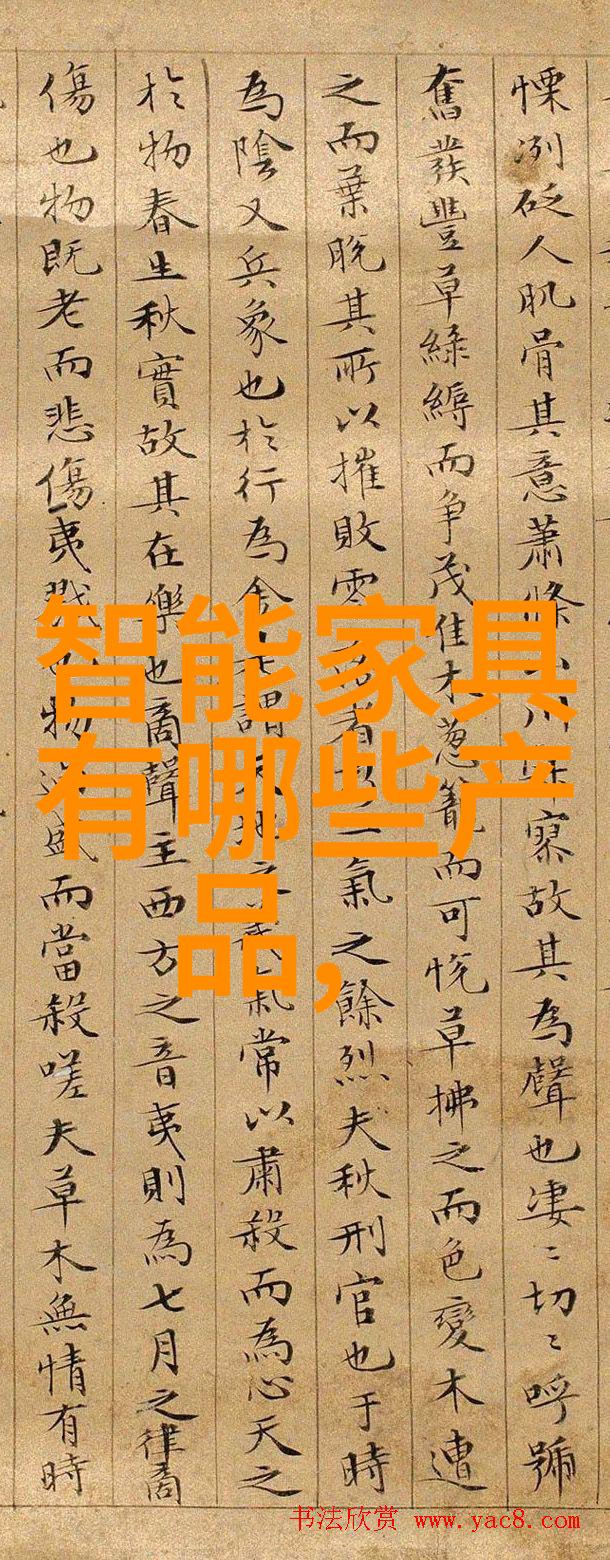 慄冽砭人肌骨其意蕭條川寥故其為聲也淒〻切〻呼號
奮發豐草綠縟而爭茂佳木葱籠而可悅草拂之而色變木遭
之而葉脫其所以摧敗零者一氣之餘烈夫秋刑官也于時
為陰又兵象也於行為金謂之氣常以肅殺而為心天之
於物春生秋實故其在樂也商聲主西方之音夷則為七月之律商
傷也物既老而悲傷夷戮物盛而當殺嗟夫草木無情有時
智能家具
有哪些产
品,
书法欣赏 www.yac8.com